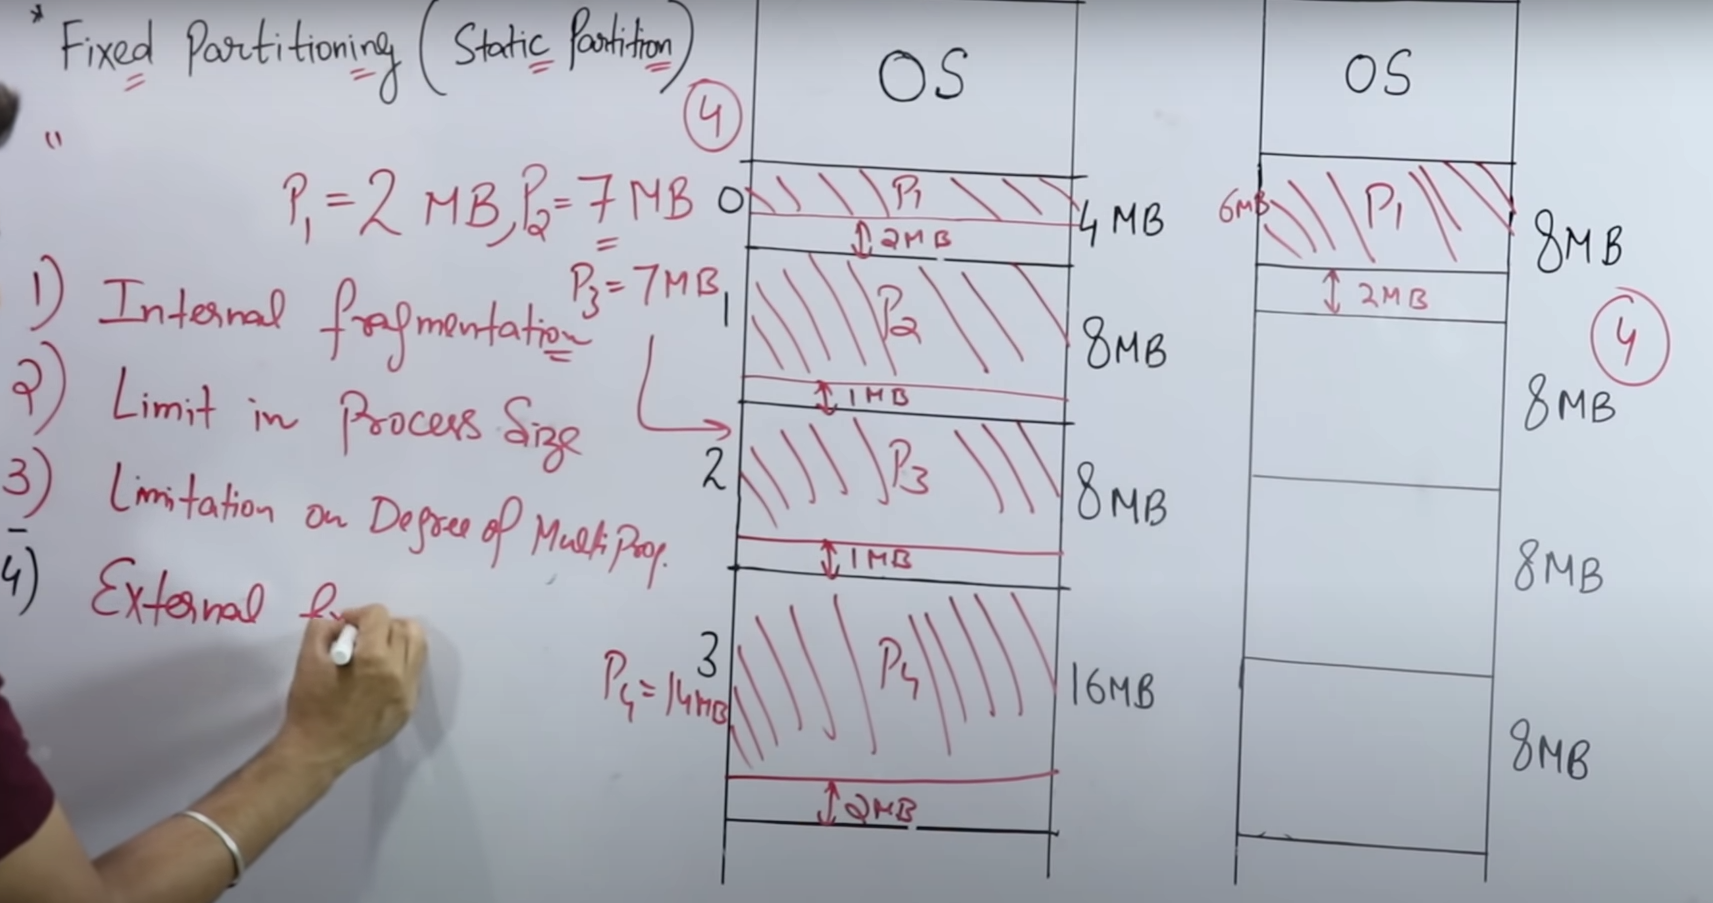 * Fixed Partitioning (Static Partition)
"
P1 = 2 MB, P2 = 7 MB
P3 = 7MB
1) Internal fragmentation
2) Limit in Process Size
3) Limitation on Degree of MultiProg.
4) External
P4 = 14MB
4
OS
0 P1 4 MB
2MB
1 P2 8MB
1MB
2 P3 8MB
1MB
3 P4 16MB
2MB
OS
6MB P1 8MB
2MB
4
8MB
8MB
8MB